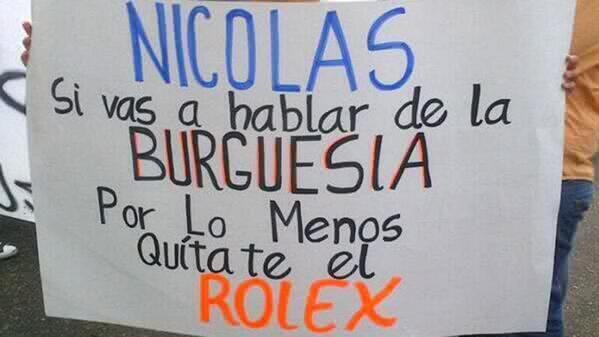 NICOLAS
Si vas a hablar de la
BURGUESIA
Por Lo Menos
Quítate el
ROLEX